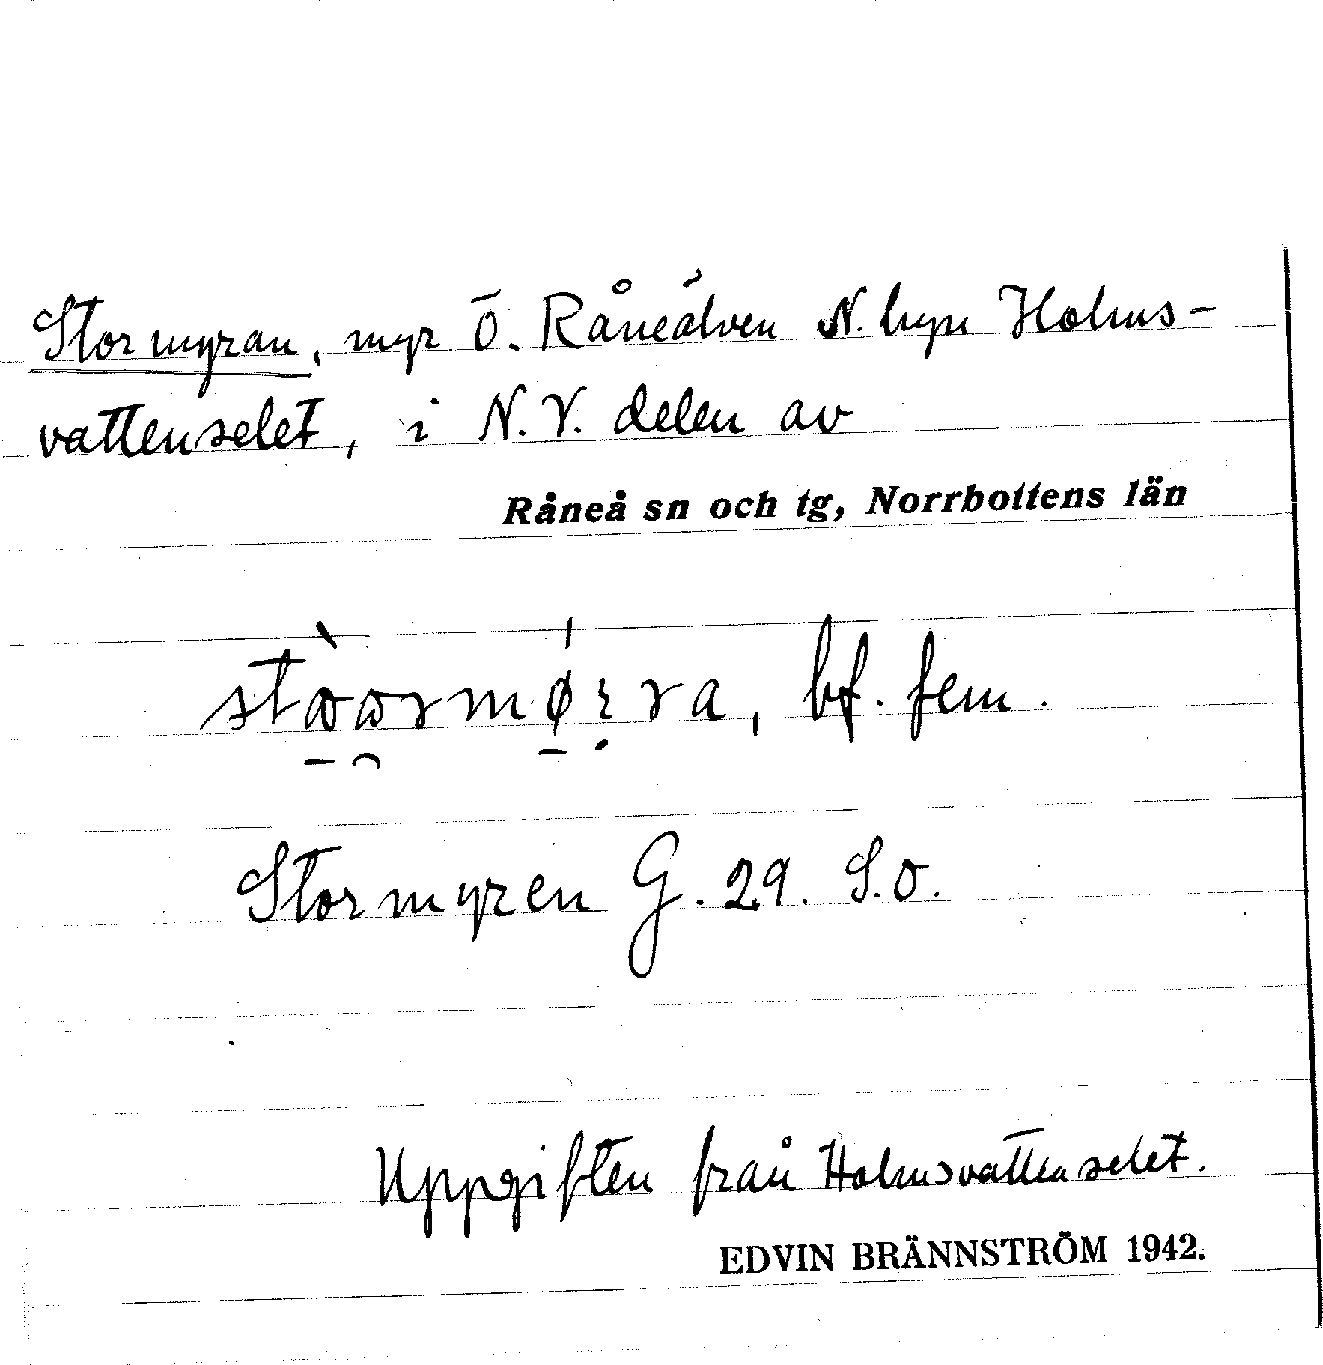 Stormyran, myr Ö. Råneälven N. byn Holms-
vattenselet, i N.V. delen av
Råneå sn och tg, Norrbottens län
bf. fem.
Stormyren G. 29. S.O.
Uppgiften från Holmsvattenselet.
EDVIN BRÄNNSTRÖM 1942.